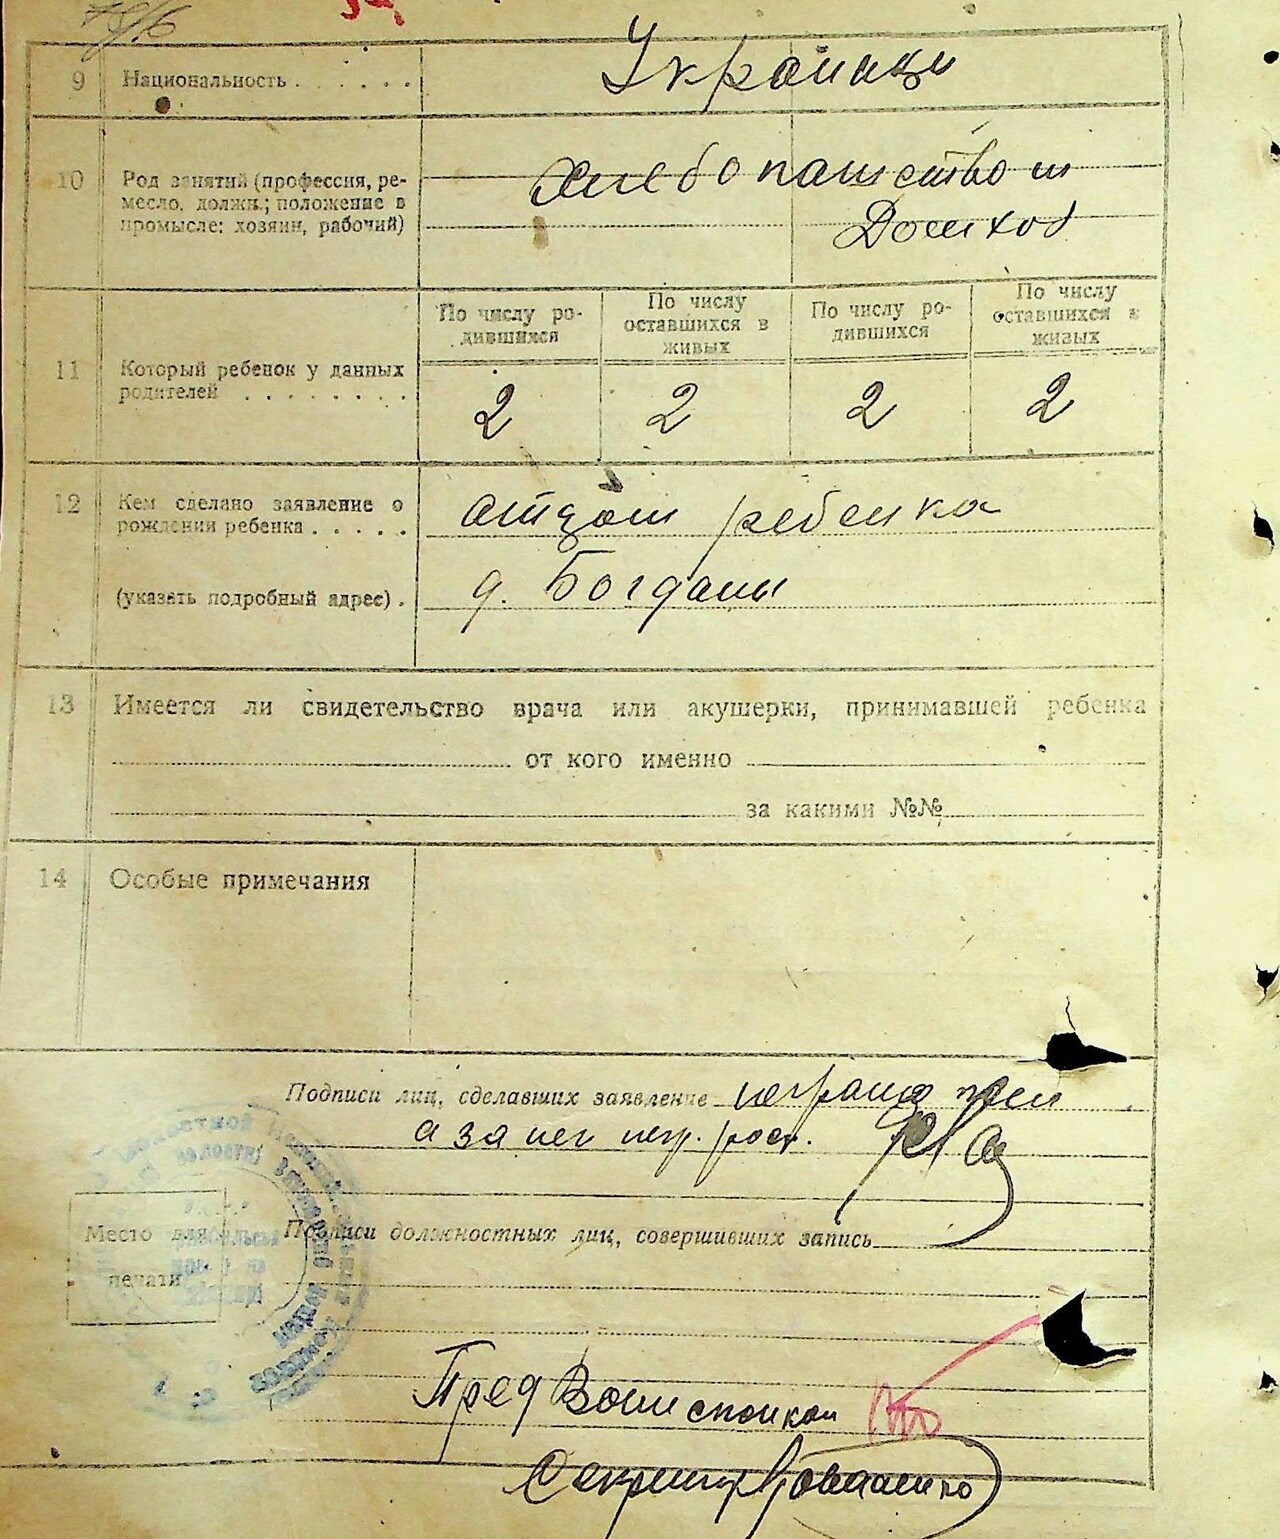 9 Национальность . . . . . . Украинцы
10 Род занятий (профессия, ре-
месло, должн.; положение в
промысле: хозяин, рабочий)
хлебопашество и
Домхоз
По числу ро-
дившихся
По числу
оставшихся в
живых
По числу ро-
дившихся
По числу
оставшихся в
живых
11 Который ребенок у данных
родителей . . . . . . . .
2 2 2 2
12 Кем сделано заявление о
рождении ребенка . . . . .
отцом ребенка
(указать подробный адрес) . д. Богданы
13 Имеется ли свидетельство врача или акушерки, принимавшей ребенка
от кого именно
за какими №№
14 Особые примечания
Подписи лиц, сделавших заявление
а за нег
Место для
печати
Подписи должностных лиц, совершивших запись
Пред Волисполком